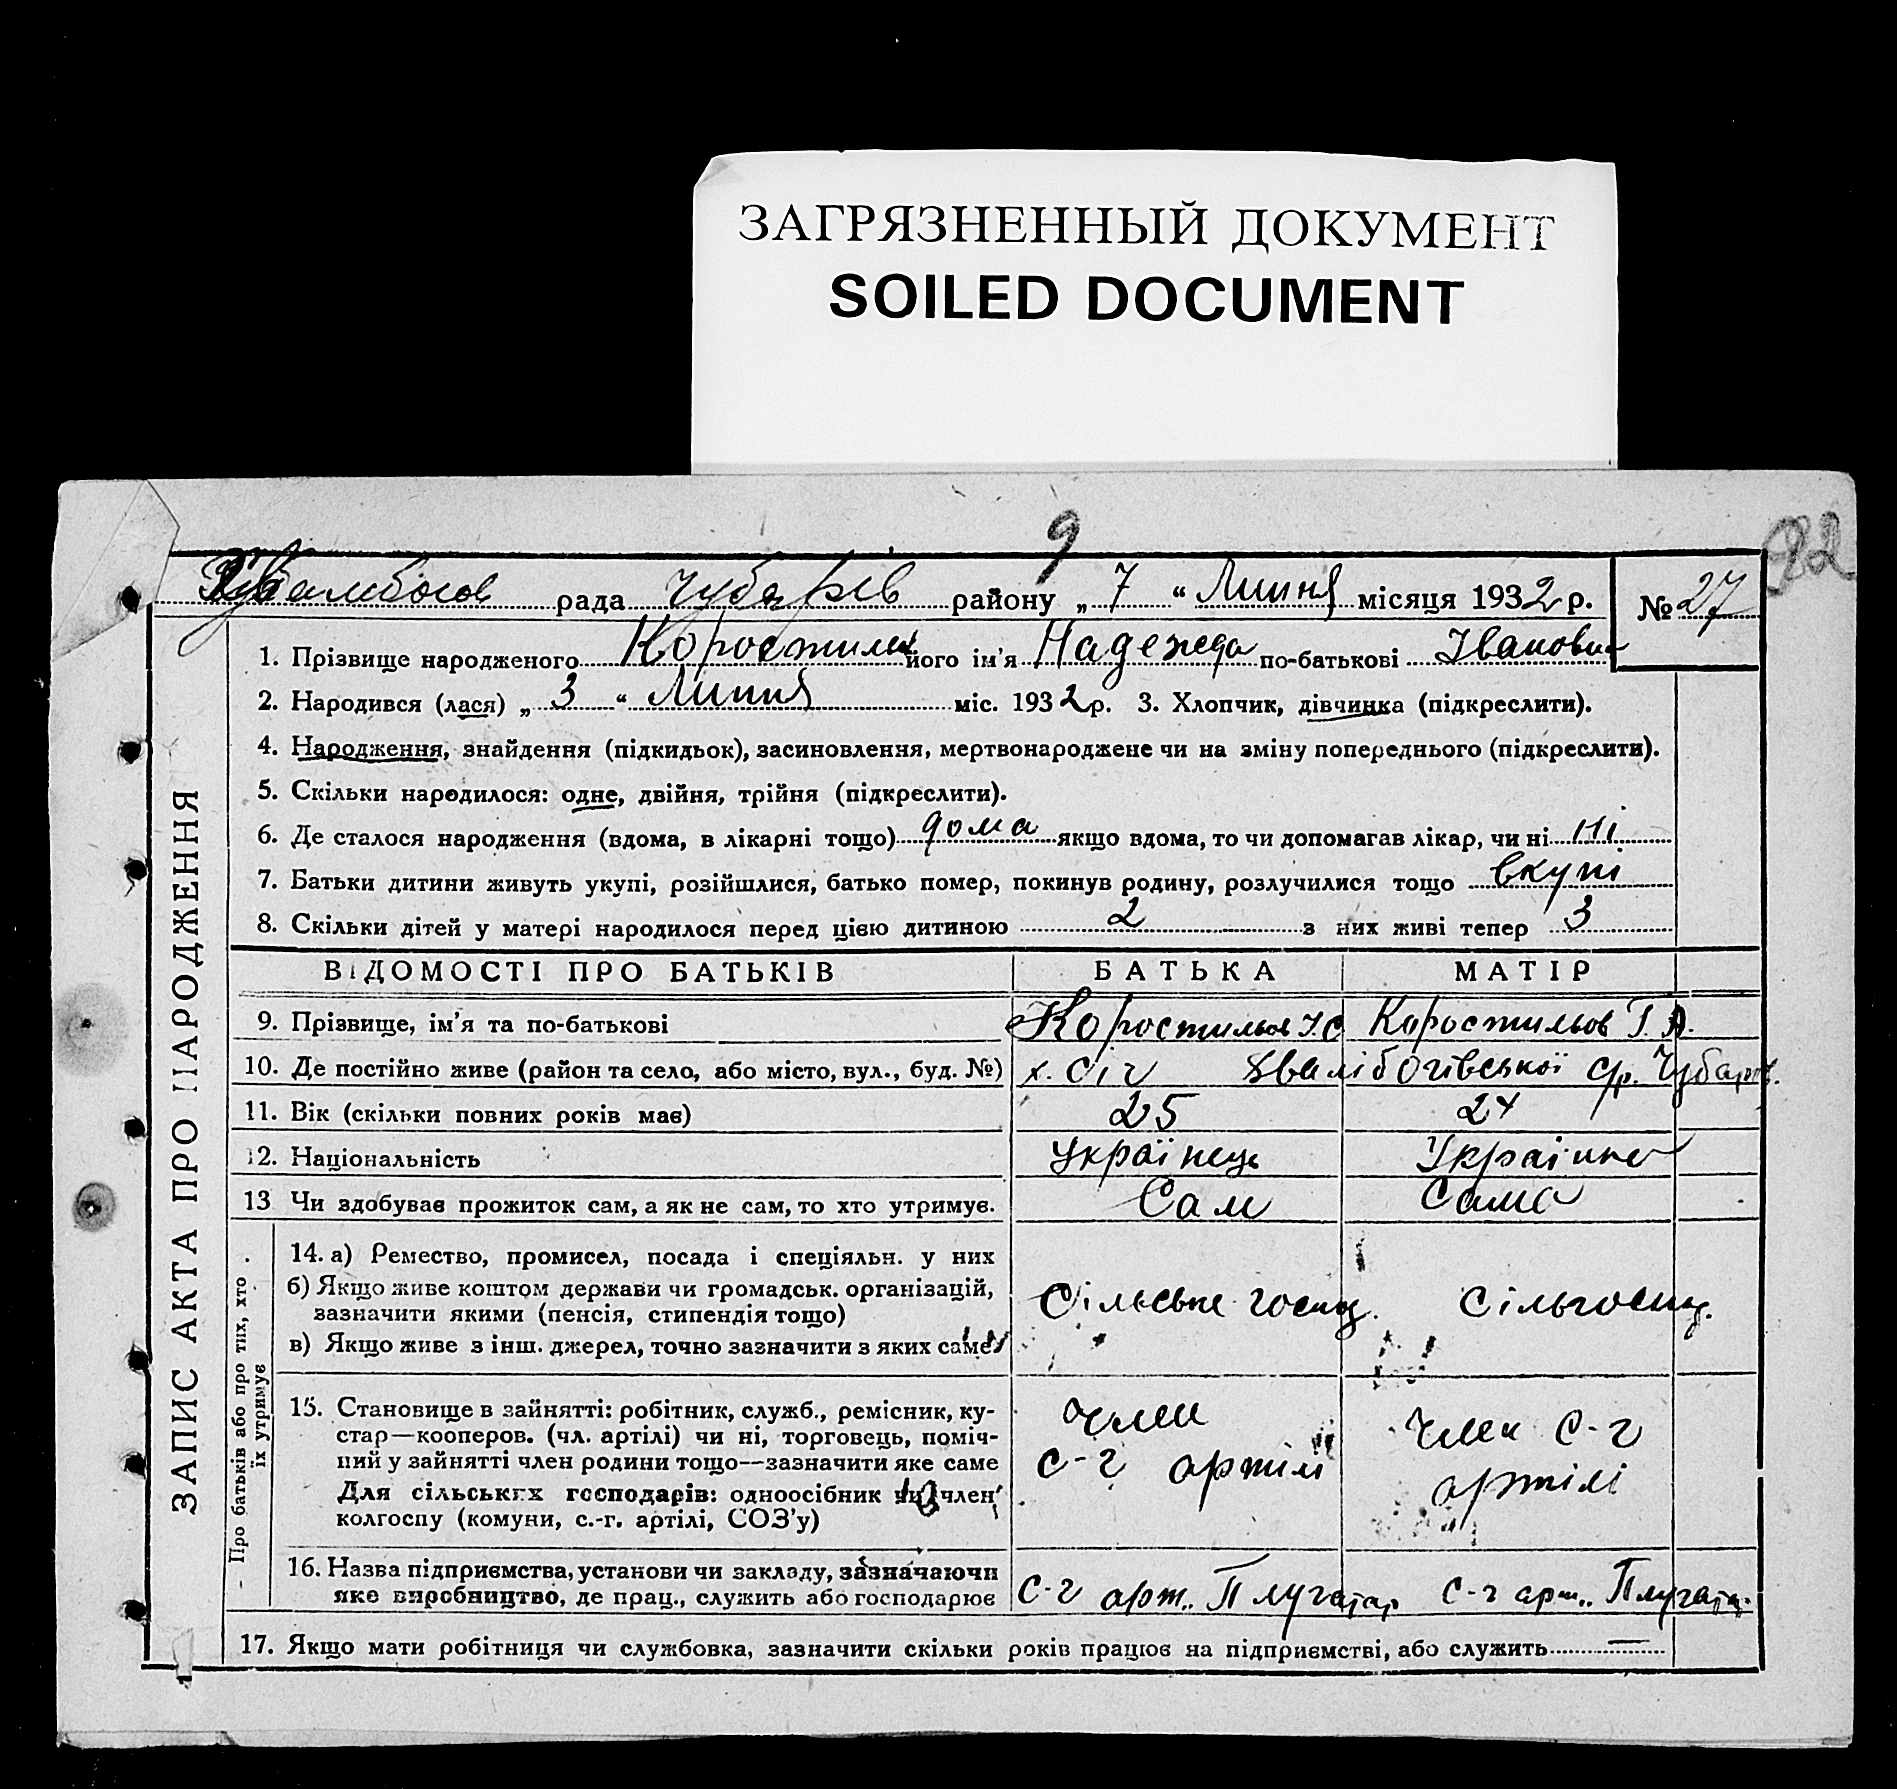 ЗАГРЯЗНЕННЫЙ ДОКУМЕНТ
SOILED DOCUMENT
9
92
рада Чубарів району „ 7 “ Липня місяця 1932 р. № 27
ЗАПИС АКТА ПРО НАРОДЖЕННЯ
1. Прізвище народженого його ім'я Надежда по-батькові
2. Народився (лася) „ 3 “ Липня міс. 1932 р. 3. Хлопчик, дівчинка (підкреслити).
4. Народження, знайдення (підкидьок), засиновлення, мертвонароджене чи на зміну попереднього (підкреслити).
5. Скільки народилося: одне, двійня, трійня (підкреслити).
6. Де сталося народження (вдома, в лікарні тощо) дома якщо вдома, то чи допомагав лікар, чи ні ні
7. Батьки дитини живуть укупі, розійшлися, батько помер, покинув родину, розлучилися тощо вкупі
8. Скільки дітей у матері народилося перед цією дитиною 2 з них живі тепер 3
ВІДОМОСТІ ПРО БАТЬКІВ БАТЬКА МАТІР
9. Прізвище, ім'я та по-батькові Коростильов І. С. Коростильов Г. А.
10. Де постійно живе (район та село, або місто, вул., буд. №) х. Січ ср. Чубарів.
11. Вік (скільки повних років має) 25 24
12. Національність Українець Українка
13 Чи здобуває прожиток сам, а як не сам, то хто утримує. Сам Сама
Про батьків або про тих, хто їх утримує
14. а) Ремество, промисел, посада і спеціяльн. у них
б) Якщо живе коштом держави чи громадськ. організацій,
зазначити якими (пенсія, стипендія тощо) Сільське госпд. Сільгоспд.
в) Якщо живе з інш. джерел, точно зазначити з яких саме
15. Становище в зайнятті: робітник, служб., ремісник, ку-
стар—кооперов. (чл. артілі) чи ні, торговець, поміч-
ний у зайнятті член родини тощо—зазначити яке саме
Для сільських господарів: одноосібник чи член
колгоспу (комуни, с.-г. артілі, СОЗ'у)
Член
с-г артілі
Член с-г
артілі
16. Назва підприємства, установи чи закладу, зазначаючи
яке виробництво, де прац., служить або господарює с-г арт. Плугатар с-г арт. Плугатар
17. Якщо мати робітниця чи службовка, зазначити скільки років працює на підприємстві, або служить —